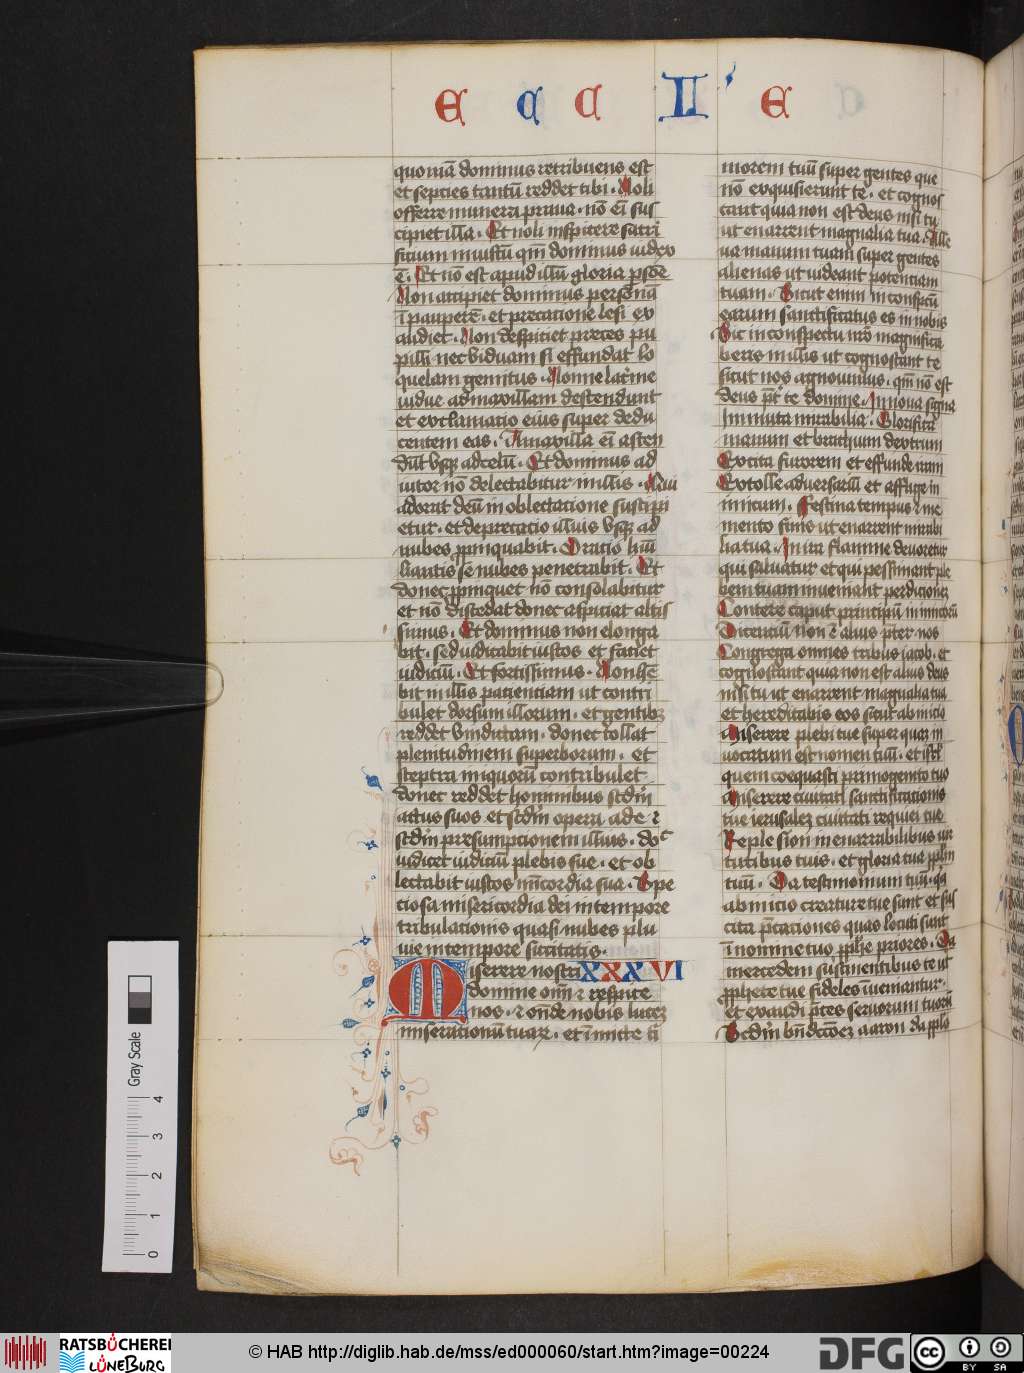 E C C LI' E
quoniā dominus retribuens est
et sepcies tantū reddet tibi . Noli
offerre munera praua . nō eī sus
cipiet illa . Et noli inspicere sacri
ficium iniustū qm̄ dominus iudex
ē . Et nō est apud illū gloria p̄sōe
Non accipiet dominus personā
ī paupere . et precacione lesi ex
audiet . Non despiciet preces pu
pilli nec viduam si effundat lo
quelam gemitus . Nonne lacrime
uidue ad maxillam descendunt
et exclamacio eius super dedu
centem eas . A maxilla eī ascen
dūt vsqz ad celū . Et dominus ad
iutor nō delectabitur in illis . Qui
adorat deū in oblectacione suscipi
etur . et deprecacio illius vsqz ad
nubes ꝓpinquabit . Oracio hūi
liantis se nubes penetrabit . Et
donec ꝓpinquet nō consolabitur
et nō discedat donec aspiciat altis
simus . Et dominus non elonga
bit . sed iudicabit iustos et faciet
iudiciū . Et fortissimus . Non hē
bit in illis pacienciam ut contri
bulet dorsum illorum . et gentibz
reddet vindictam . donec tollat
plenitudinem superborum . et
sceptra iniquorū contribulet
donec reddet hominibus scd̄m
actus suos et scd̄m opera ade ⁊
scd̄m presumpcionem illius . doc
iudicet iudiciū plebis sue . et ob
lectabit iustos mīcordia sua . Spe
ciosa misericordia dei in tempore
tribulacionis quasi nubes plu
uie in tempore siccitatis .
Miserere nostri XXXVI
domine om̄ ⁊ respice
nos . ⁊ on̄de nobis lucez
miseracionū tuarz . et īmitte ti
morem tuū super gentes que
nō exquisierunt te . et cognos
cant quia non est deus nisi tu
ut enarrent magnalia tua . Alle
ua manum tuam super gentes
alienas ut uideant potentiam
tuam . Sicut enim in conspcū
earum sanctificatus es in nobis
Sic in conspectu nrō magnifica
beris in illis ut cognoscant te
sicut nos agnouimus . qm̄ nō est
deus p̄t te domine . Innoua signa
Immuta mirabilia . Glorifica
manum et brachium dextrum
Excita furorem et effunde iram
Extolle aduersariū et afflige in
imicum . Festina tempus ⁊ me
mento finis ut enarrent mirabi
lia tua . In ira flamme deuoretur
qui saluatur et qui pessimant ple
bem tuam inueniant perdicionez
Contere caput principū inimicorū
Dicenciū non ē alius p̄ter nos
Congrega omnes tribus iacob . et
cognoscant quia non est alius deus
nisi tu ut enarrent magnalia tua
et hereditabis eos sicut ab inicio
Miserere plebi tue super quaz in
uocatum est nomen tuū . et isrl̄
quem coequasti primogenito tuo
Miserere ciuitati sanctificacionis
tue ierusalez ciuitati requiei tue
Reple sion inenarrabilibus uir
tutibus tuis . et gloria tua pplm̄
tuū . Da testimonium tuū . qā
ab inicio creature tue sunt et sus
cita p̄caciones quas locuti sunt
ī nomine tuo ꝓphe priores . Da
mercedem sustinentibus te ut
ꝓphete tue fideles īueniantur .
et exaudi p̄ces seruorum tuorū
Scdm̄ bn̄dcōez aaron da pplo
Gray Scale
0 1 2 3 4
RATSBÜCHEREI
LÜNEBURG
© HAB http://diglib.hab.de/mss/ed000060/start.htm?image=00224
DFG
cc BY SA